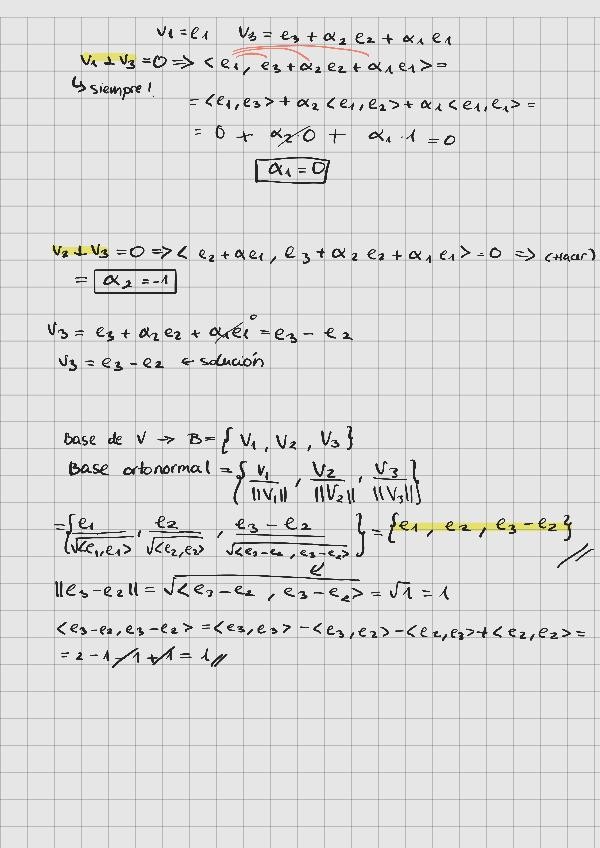 V1 = e1    V3 = e3 + α2 e2 + α1 e1
V1 ⊥ V3 = 0 => < e1, e3 + α2 e2 + α1 e1 > =
↳ siempre!
= <e1, e3> + α2 <e1, e2> + α1 <e1, e1> =
= 0 + α2·0 + α1·1 = 0
α1 = 0
V2 ⊥ V3 = 0 => < e2 + αe1, e3 + α2 e2 + α1 e1 > = 0 => (Hacer)
= α2 = -1
V3 = e3 + α2 e2 + α1e1 0 = e3 - e2
V3 = e3 - e2 ← solución
Base de V → B = { V1, V2, V3 }
Base ortonormal = { V1/||V1||, V2/||V2||, V3/||V3|| }
= { e1/√<e1,e1>, e2/√<e2,e2>, e3 - e2/√<e3-e2, e3-e2> } = { e1, e2, e3 - e2 }
||e3 - e2|| = √<e3 - e2, e3 - e2> = √1 = 1
<e3-e2, e3-e2> = <e3, e3> - <e3, e2> - <e2, e3> + <e2, e2> =
= 2 - 1 - 1 + 1 = 1